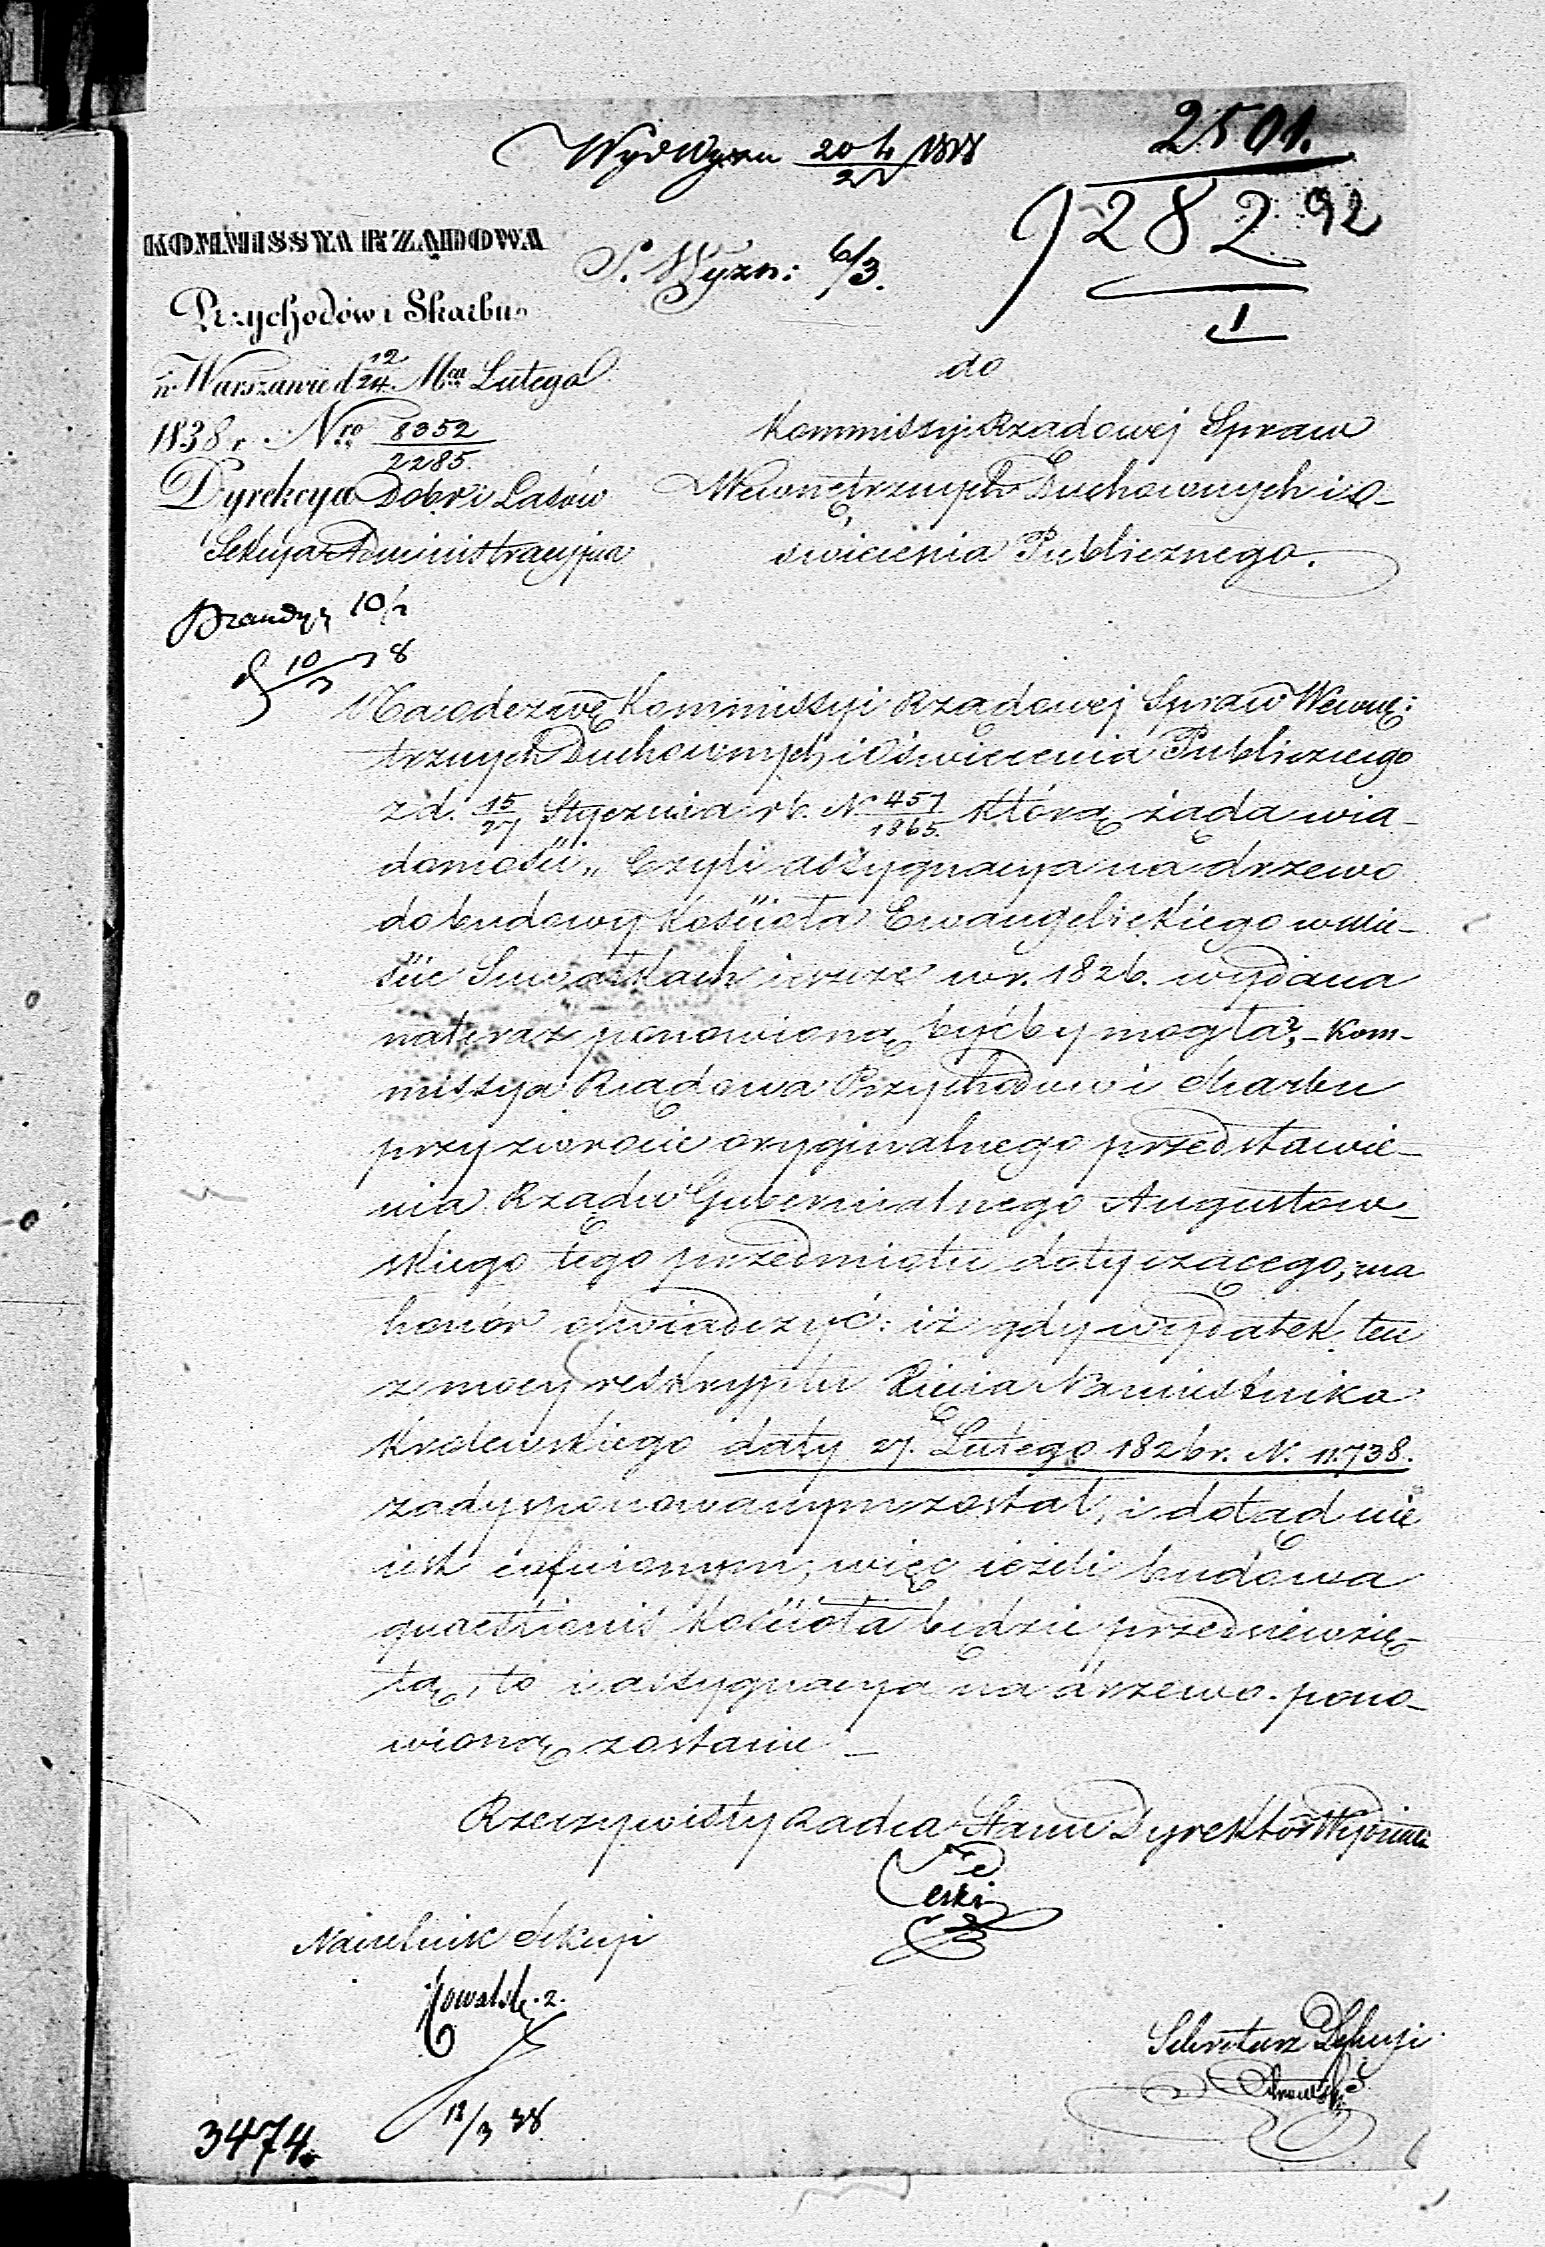 2501.
Wyd Wyzn 20/22 1838
9282 92
1
KOMMISSYA RZĄDOWA
S. Wyzn: 6/3.
Przychodów i Skarbu
w Warszawie d 12/24. Mca Lutego
1838 r. Nro 8352/2285.
Dyrekcya Dobr i Lasów
Sekcya Administracyjna
do
Kommissyi Rządowej Spraw
Wewnętrznych Duchownych i O-
świecenia Publicznego.
10/3
10/3 8
Na odezwę Kommissyi Rządowej Spraw Wewnę:
trznych Duchownych i Oświecenia Publicznego
z d. 15/27 Stycznia r b. N 451/1865. którą żąda wia-
domości „ Czyli assygnacya na drzewo
do budowy Kościoła Ewangelickiego w Mie-
ście Suwałkach ieszcze w r. 1826. wydana
nateraz ponowioną byćby mogła? - Kom-
missya Rządowa Przychodów i Skarbu
przy zwrocie oryginalnego przedstawie-
nia Rządu Gubernialnego Augustow-
skiego tego przedmiotu dotyczącego, ma
honór oświadczyć: iż gdy wydatek ten
z mocy reskryptu Xięcia Namiestnika
Krolewskiego daty 27. Lutego 1826 r. N. 11.738.
zadysponowanym został, i dotąd nie
iest cofnionym, więc ieżeli budowa
quaestionis Kościoła będzie przedsiewzię-
tą, to i assygnacya na drzewo pono-
wioną zostanie _
Rzeczywisty Radca Stanu Dyrektor Wydziału
Naczelnik Sekcyi
Kowalsk
Sekretarz Sekcyi
3474.
12/3 38